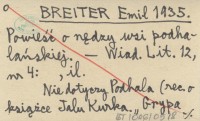 BREITER Emil 1935.
Powieść o nędzy wsi podha-
lańskiej. — Wiad. Lit. 12,
nr 4: , il.
Nie dotyczy Podhala (rec. o
książce Jalu Kurka „Grypa